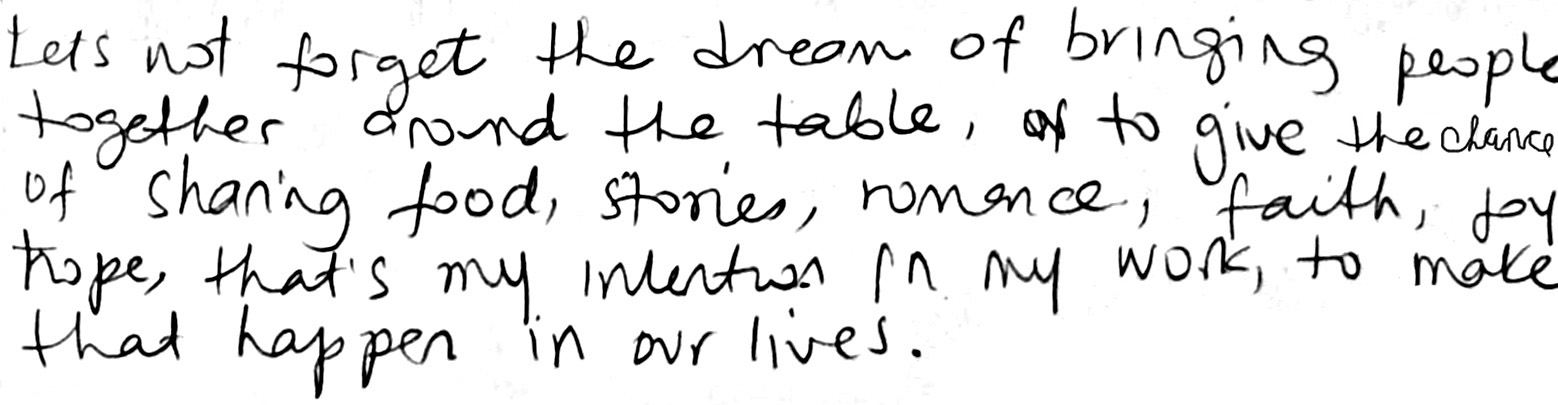 Lets not forget the dream of bringing people
together around the table, or to give the chance
of sharing food, stories, romance, faith, joy
hope, that's my intention in my work, to make
that happen in our lives.